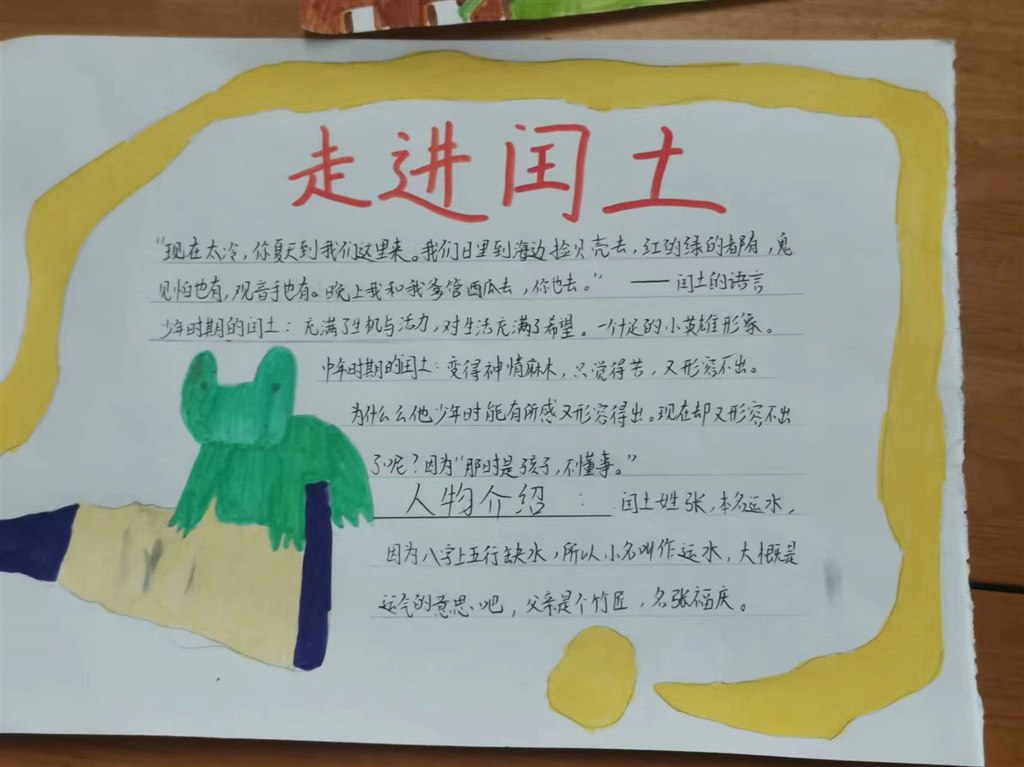 走进闰土
“现在太冷，你夏天到我们这里来。我们日里到海边捡贝壳去，红的绿的都有，鬼
见怕也有，观音手也有。晚上我和我爹管西瓜去，你也去。” ——闰土的语言
少年时期的闰土：充满了生机与活力，对生活充满了希望。一个十足的小英雄形象。
中年时期的闰土：变得神情麻木，只觉得苦，又形容不出。
为什么么他少年时能有所感又形容得出。现在却又形容不出
了呢？因为“那时是孩子，不懂事。”
人物介绍：闰土姓张，本名运水，
因为八字上五行缺水，所以小名叫作运水，大概是
运气的意思吧，父亲是个竹匠，名张福庆。